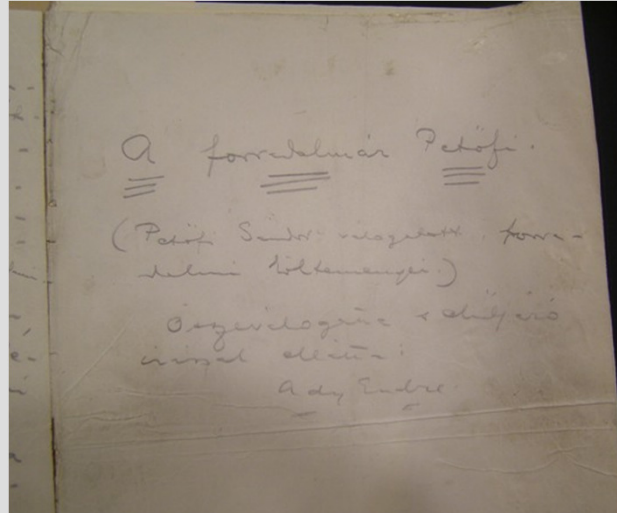 A forradalmár Petőfi.
(Petőfi Sándor válogatott forra-
dalmi költeményei.)
Összeválogatta s előljáró
írással ellátta:
Ady Endre